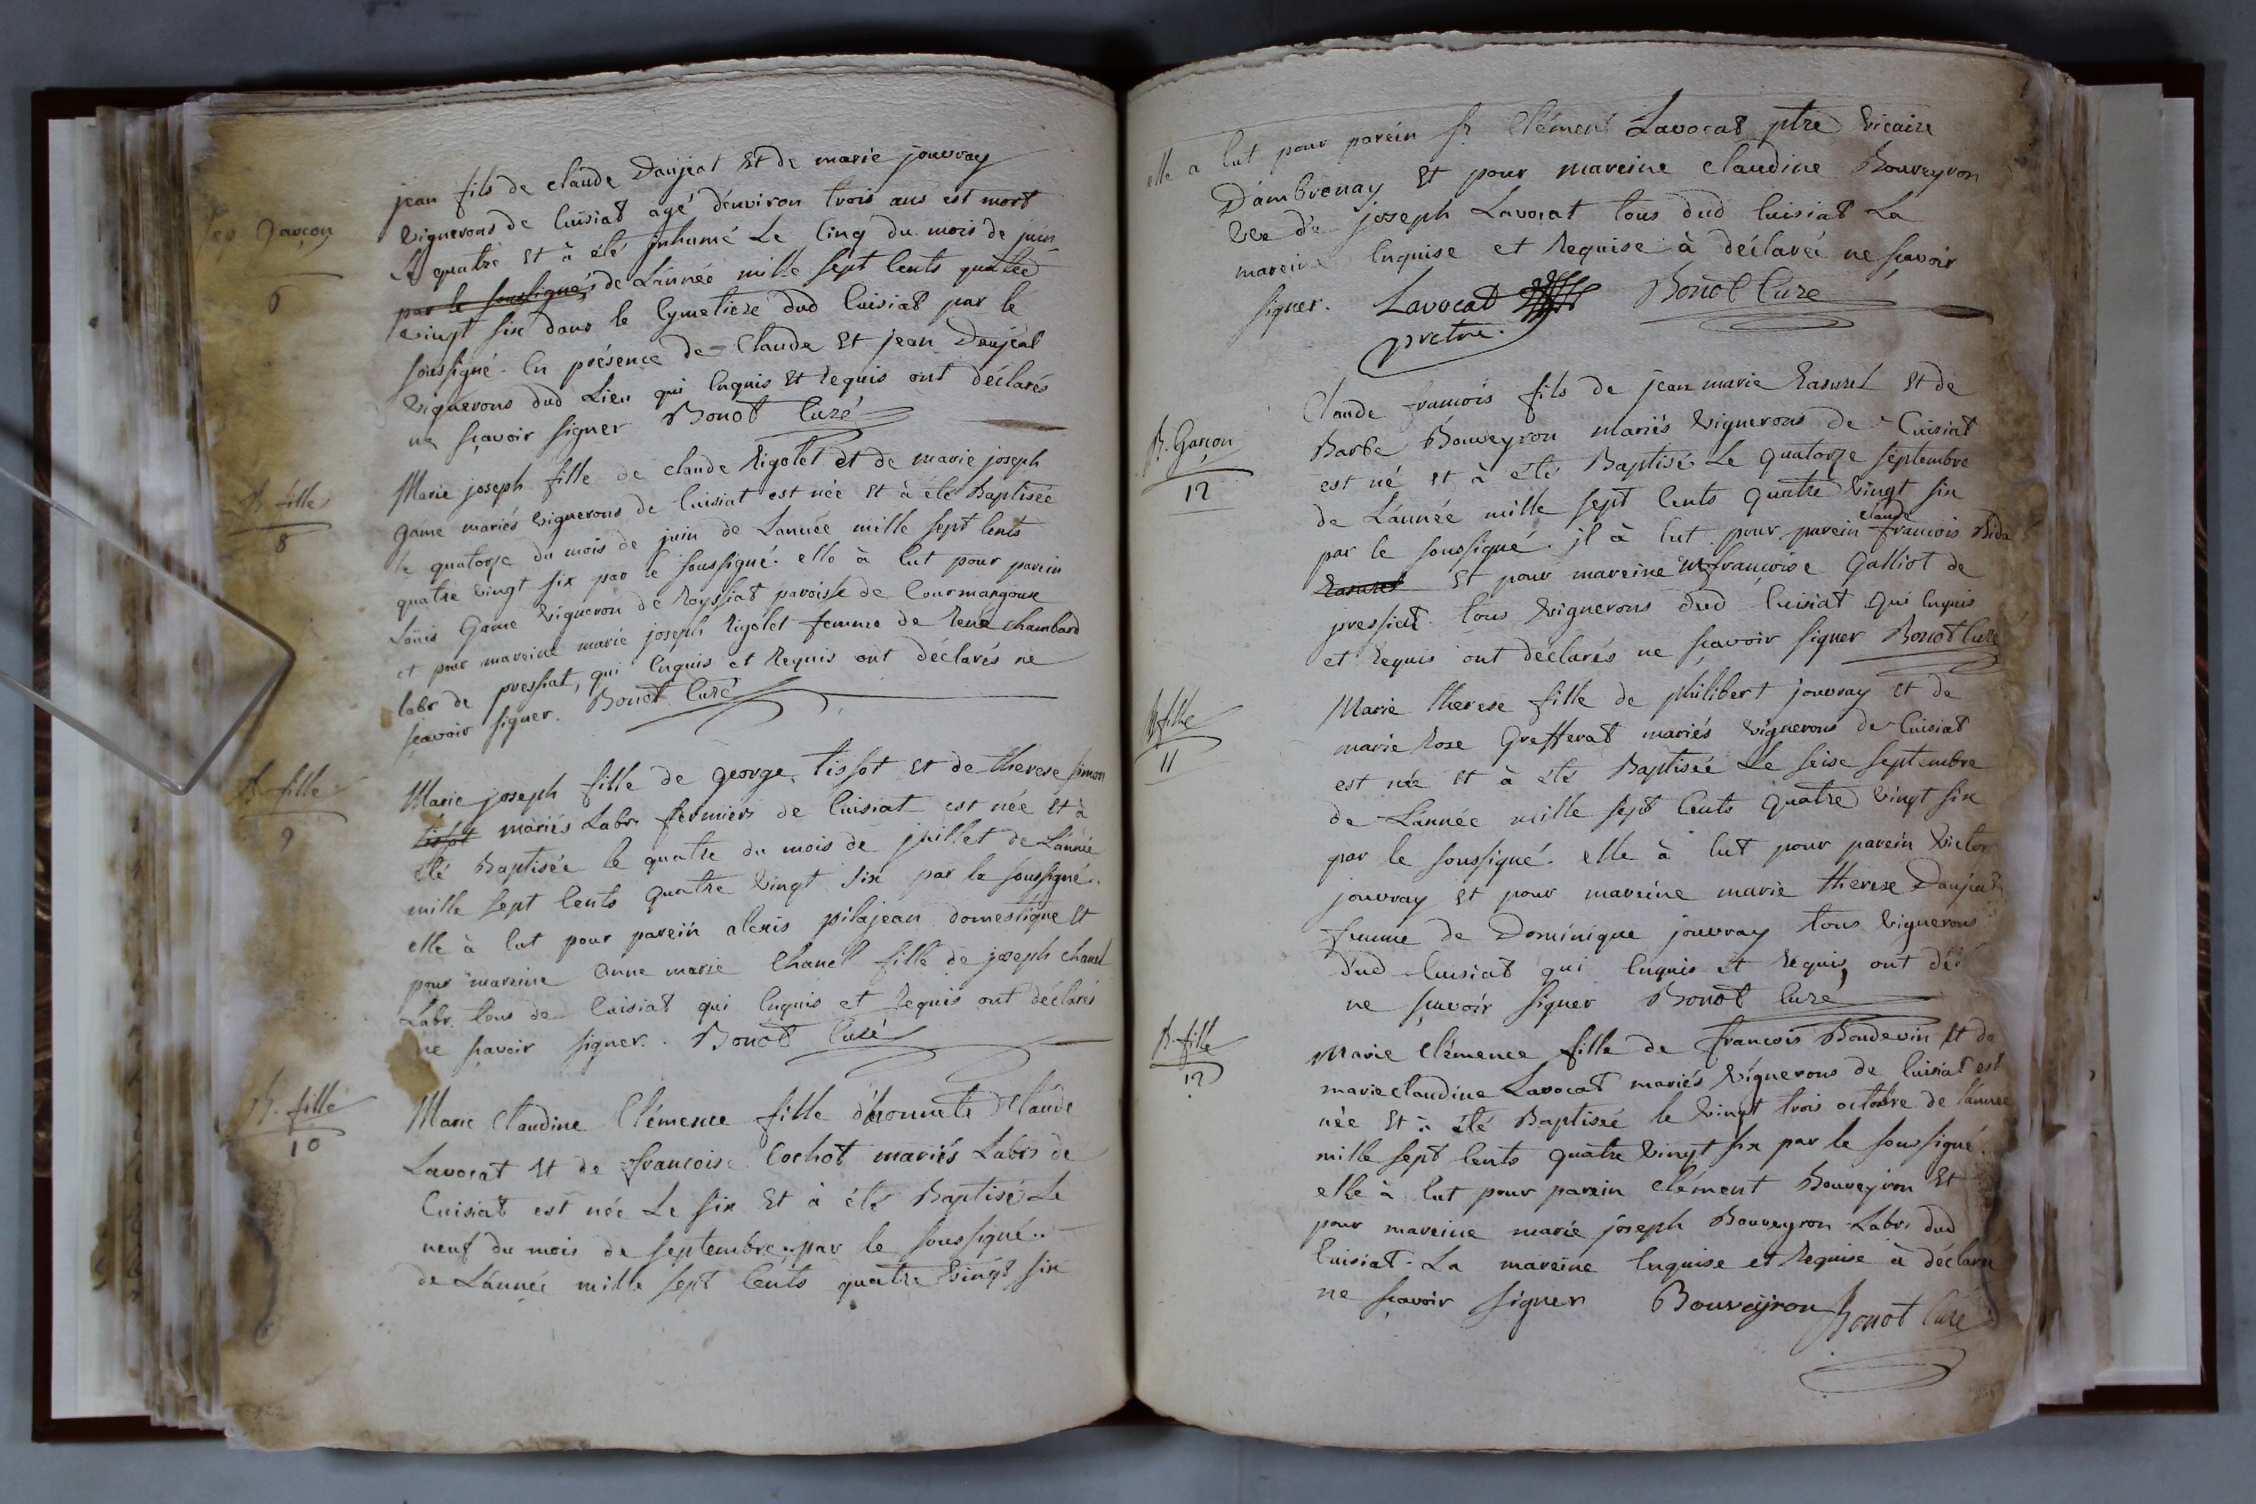 Garçon
6
jean fils de claude Daujeat Et de marie jouvray
vignerons de Cuisiat agé d'environ trois ans est mort
Le quatre Et à été jnhumé Le Cinq du mois de juin
par le soussigné de L'année mille sept Cents quatre
vingt six dans le Cymetiere dud Cuisiat par le
soussigné. En présence de Claude Et jean Daujeat
vignerons dud Lieu qui Enquis Et Requis ont déclarés
ne sçavoir signer Bonot Curé
B. fille
8
Marie joseph fille de claude Rigolet Et de marie joseph
Game mariés vignerons de Cuisiat est née Et à été Baptisée
le quatorze du mois de juin de Lannée mille sept Cents
quatre vingt six par le soussigné. elle à Eut pour parein
Loüis Game vigneron de Royssiat paroisse de Courmangoux
et pour mareine marie joseph Rigolet femme de René Chambard
labr de pressiat, qui Enquis et Requis ont déclarés ne
sçavoir signer. Bonot Curé
B. fille
9
Marie joseph fille de george tissot Et de therese simon
tissot mariés Labrs fermiers de Cuisiat est née Et à
été Baptisée le quatre du mois de juillet de L'année
mille sept Cents quatre vingt six par le soussigné.
elle à Eut pour parein alexis pilajean domestique Et
pour mareine anne marie Chanel fille de joseph Chanel
Labr. tous de Cuisiat qui Enquis et Requis ont déclarés
ne sçavoir signer. Bonot Curé
B. fille
10
Marie Claudine Clémence fille d'honnete Claude
Lavocat Et de francoise Cochot mariés Labrs de
Cuisiat est née Le six Et à été Baptisé Le
neuf du mois de septembre par le soussigné.
de L'année mille sept Cents quatre vingt six
elle a Eut pour parein sr Clément Lavocat ptre vicaire
D'ambronay Et pour mareine Claudine Bouveyron
vve de joseph Lavocat tous dud Cuisiat La
mareine Enquise et Requise à déclaréé ne sçavoir
signer. Lavocat Bonot Curé
pretre.
B. Garçon
12
Claude francois fils de jean marie Rasurel Et de
Barbe Bouveyron mariés vignerons de Cuisiat
est né Et à été Baptisé Le quatorze septembre
de L'année mille sept Cents quatre vingt six
par le soussigné. jl à Eut pour parein claude francois
Rasurel Et pour mareine francoise Galliot de
pressiat. tous vignerons dud Cuisiat qui Enquis
et Requis ont déclarés ne sçavoir signer Bonot Curé
B. fille
11
Marie therese fille de philibert jouvray Et de
marie Rose Grefferat mariés vignerons de Cuisiat
est née Et à été Baptisée Le seise septembre
de L'année mille sept Cents quatre vingt six
par le soussigné. elle à Eut pour parein victor
jouvray Et pour mareine marie therese Daujeat
femme de Dominique jouvray tous vignerons
dud Cuisiat qui Enquis et Requis ont dé
ne sçavoir signer Bonot Curé
B. fille
12
Marie Clémence fille de françois Boudevin Et de
marie claudine Lavocat mariés vignerons de Cuisiat est
née Et à été Baptisée le vingt trois octobre de l'année
mille sept Cents quatre vingt six par le soussigné.
elle à Eut pour parein Clément Bouveyron Et
pour mareine marie joseph Bouveyron Labrs dud
Cuisiat. La mareine Enquise et Requise à déclaré
ne sçavoir signer Bouveyron Bonot Curé